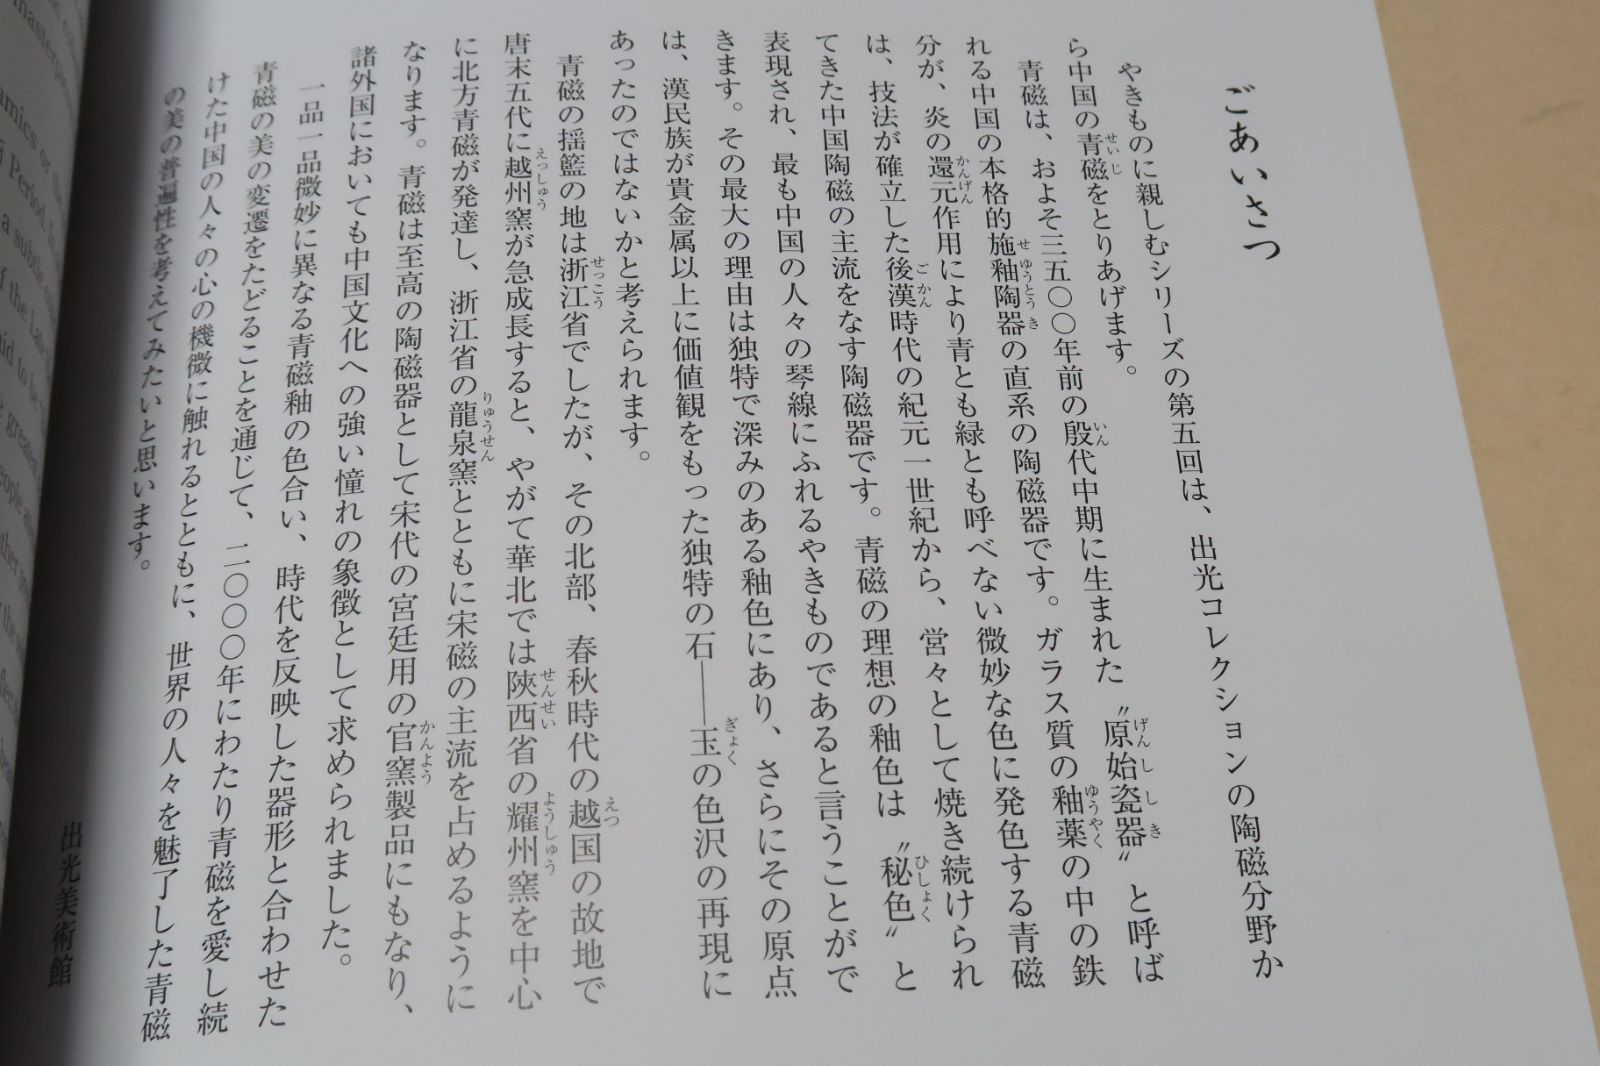 ごあいさつ
やきものに親しむシリーズの第五回は、出光コレクションの陶磁分野か
ら中国の青磁をとりあげます。
青磁は、およそ三五〇〇年前の殷代中期に生まれた〝原始瓷器〟と呼ば
れる中国の本格的施釉陶器の直系の陶磁器です。ガラス質の釉薬の中の鉄
分が、炎の還元作用により青とも緑とも呼べない微妙な色に発色する青磁
は、技法が確立した後漢時代の紀元一世紀から、営々として焼き続けられ
てきた中国陶磁の主流をなす陶磁器です。青磁の理想の釉色は〝秘色〟と
表現され、最も中国の人々の琴線にふれるやきものであると言うことがで
きます。その最大の理由は独特で深みのある釉色にあり、さらにその原点
は、漢民族が貴金属以上に価値観をもった独特の石――玉の色沢の再現に
あったのではないかと考えられます。
青磁の揺籃の地は浙江省でしたが、その北部、春秋時代の越国の故地で
唐末五代に越州窯が急成長すると、やがて華北では陝西省の耀州窯を中心
に北方青磁が発達し、浙江省の龍泉窯とともに宋磁の主流を占めるように
なります。青磁は至高の陶磁器として宋代の宮廷用の官窯製品にもなり、
諸外国においても中国文化への強い憧れの象徴として求められました。
一品一品微妙に異なる青磁釉の色合い、時代を反映した器形と合わせた
青磁の美の変遷をたどることを通じて、二〇〇〇年にわたり青磁を愛し続
けた中国の人々の心の機微に触れるとともに、世界の人々を魅了した青磁
の美の普遍性を考えてみたいと思います。
出光美術館